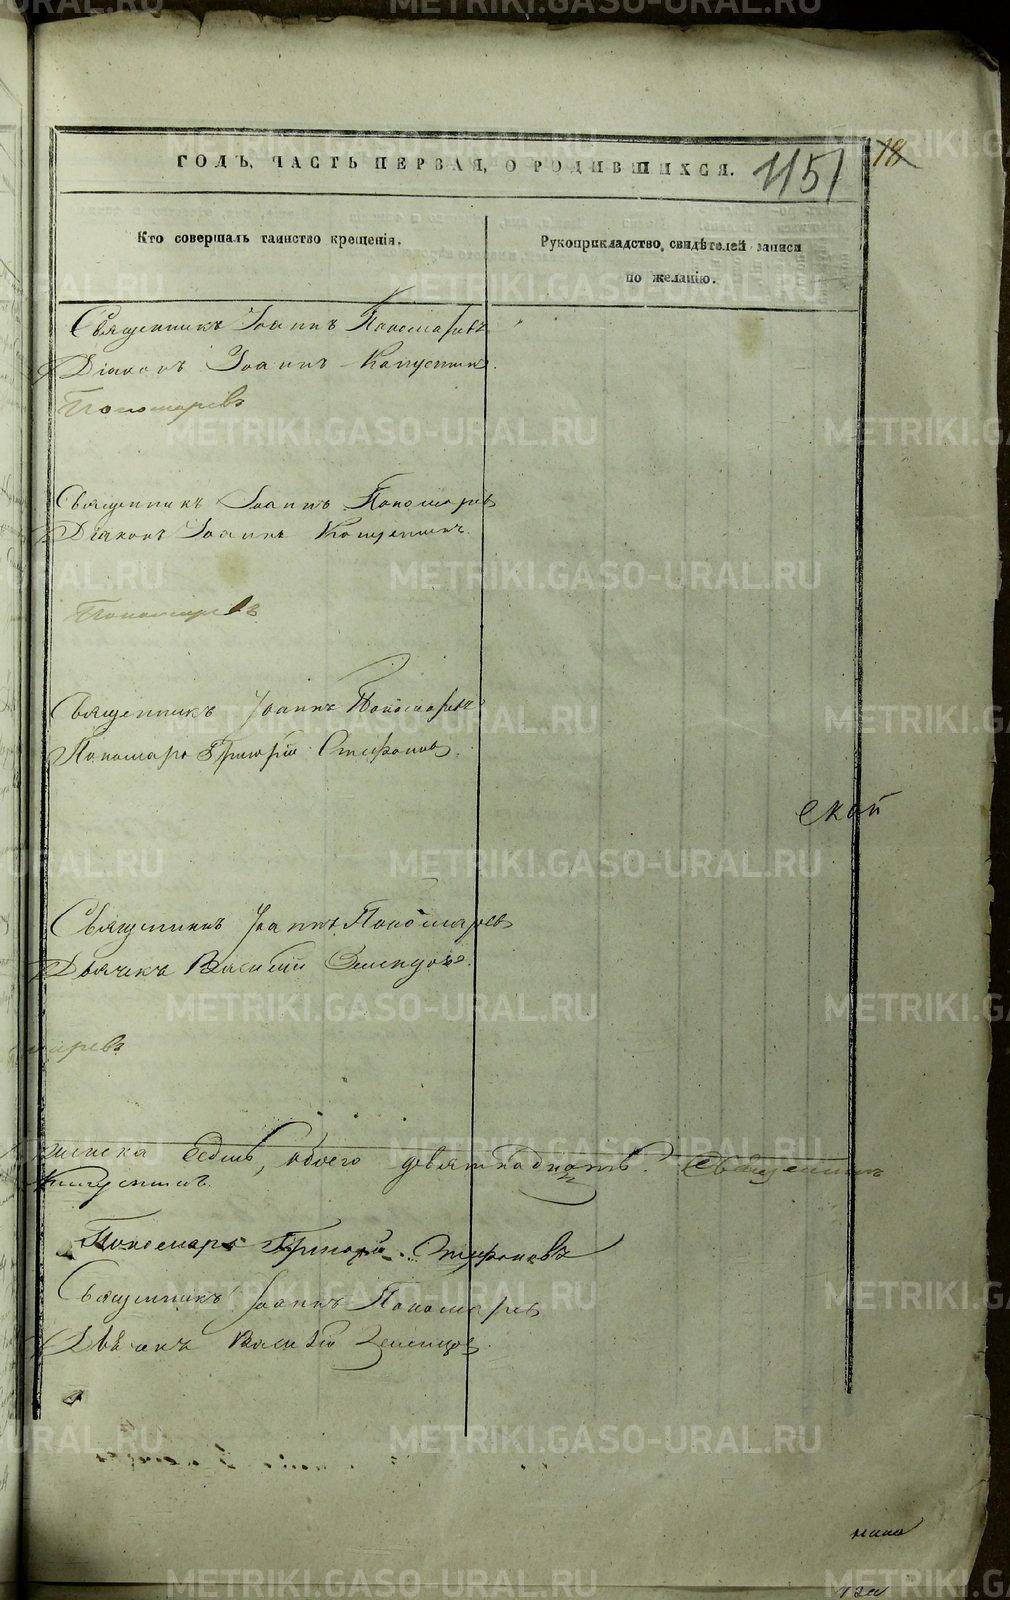 ГОДЪ, ЧАСТЬ ПЕРВАЯ, О РОДИВШИХСЯ.
1151 18
Кто совершалъ таинство крещенія.
Рукоприкладство свидѣтелей записи
по желанію.
Священникъ Іоаннъ Пономаревъ
Діаконъ Іоаннъ Капустинъ.
Пономаревъ
Священникъ Іоаннъ Пономаревъ
Діаконъ Іоаннъ Капустинъ.
Пономаревъ
Священникъ Іоаннъ Пономаревъ
Пономарь Григорій Стефановъ.
ской
Священникъ Іоаннъ Пономаревъ
Дьячекъ Василій Зеленцовъ.
маревъ
женска седмь, обоего девятнадцать. Священникъ
Капустинъ.
Пономарь Григорій Стефановъ
Священникъ Іоаннъ Пономаревъ
Дьячекъ Василій Зеленцовъ.
METRIKI.GASO-URAL.RU